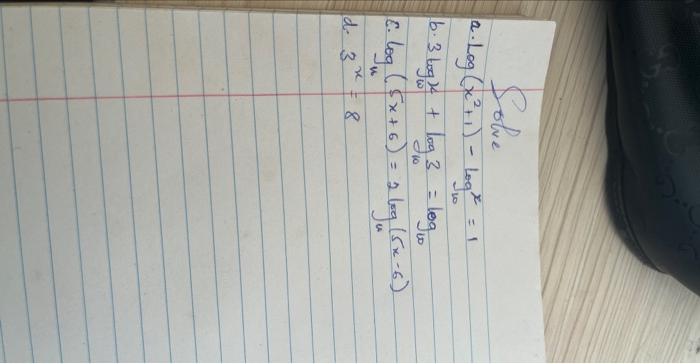 Solve
a. Log(x²+1) - log₁₀x = 1
b. 3log₁₀x + log₁₀3 = log₁₀
c. log₁₀(5x+6) = 2log₁₀(5x-6)
d. 3ˣ = 8